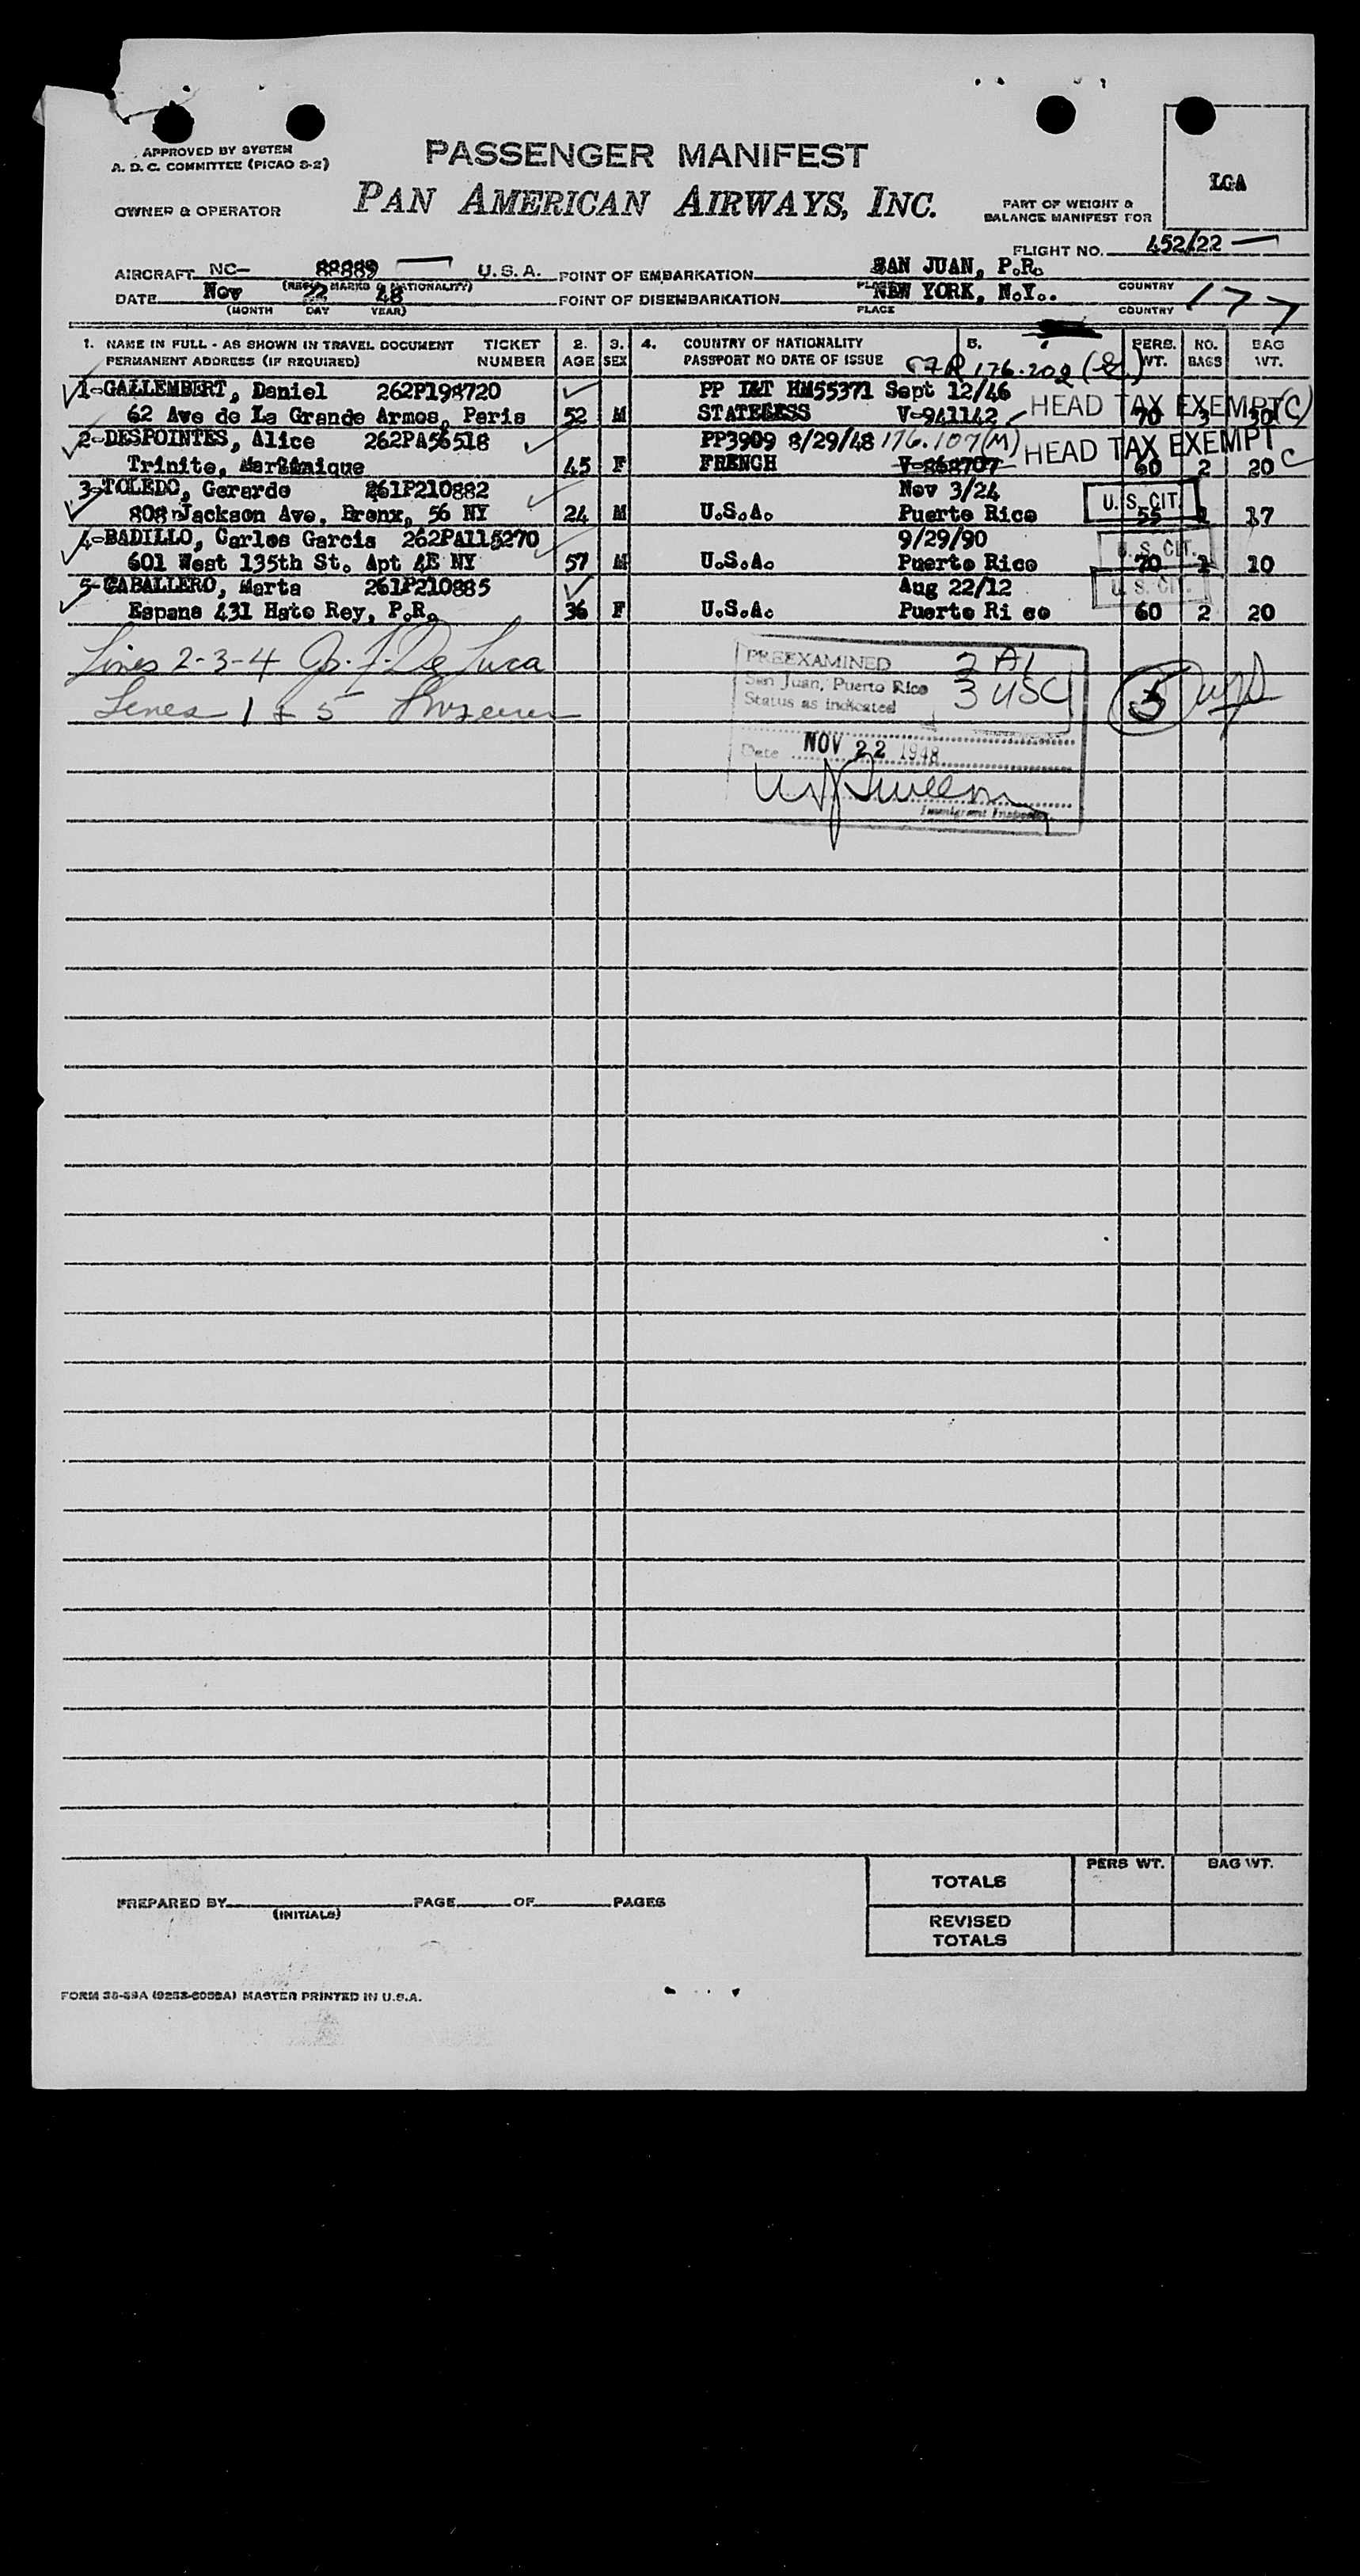 APPROVED BY SYSTEM
A. D. C. COMMITTEE (PICAO S-2)
OWNER & OPERATOR
PASSENGER MANIFEST
PAN AMERICAN AIRWAYS, INC.
LGA
PART OF WEIGHT &
BALANCE MANIFEST FOR
FLIGHT NO. 452/22
AIRCRAFT NC- 88889 U.S.A. POINT OF EMBARKATION SAN JUAN, P.R.
(REG. MARKS & NATIONALITY) PLACE COUNTRY
DATE Nov 22 48 POINT OF DISEMBARKATION NEW YORK, N.Y.. 177
(MONTH DAY YEAR) PLACE COUNTRY
1. NAME IN FULL - AS SHOWN IN TRAVEL DOCUMENT TICKET 2. 3. 4. COUNTRY OF NATIONALITY 5. PERS. NO. BAG
PERMANENT ADDRESS (IF REQUIRED) NUMBER AGE SEX PASSPORT NO DATE OF ISSUE 176.202 WT. BAGS WT.
1-GALLEMBERT, Daniel 262P198720 PP I&T HM55371 Sept 12/46
62 Ave de La Grande Armos, Paris 52 M STATELESS V-941142 HEAD TAX EXEMPT (C) 70 3 30
2-DESPOINTES, Alice 262PA56518 PP3909 8/29/48 176.107(M) HEAD TAX EXEMPT C
Trinite, Martinique 45 F FRENCH V-868707 60 2 20
3-TOLEDO, Gerardo 261P210882 Nov 3/24
808 Jackson Ave, Bronx, 56 NY 24 M U.S.A. Puerto Rico U.S. CIT. 55 17
4-BADILLO, Carlos Garcia 262PA115270 9/29/90
601 West 135th St. Apt 4E NY 57 M U.S.A. Puerto Rico U.S. CIT. 70 10
5-CABALLERO, Marta 261P210885 Aug 22/12 U.S. CIT.
Espana 431 Hato Rey, P.R. 36 F U.S.A. Puerto Ri co 60 2 20
Lines 2-3-4 De Luca
Lines 1 & 5
PREEXAMINED 2 Al
San Juan, Puerto Rico 3 USC 5
Status as indicated
Date NOV 22 1948
Immigrant Inspector
TOTALS PERS WT. BAG WT.
PREPARED BY PAGE OF PAGES
(INITIALS)
REVISED
TOTALS
FORM 38-59A MASTER PRINTED IN U.S.A.